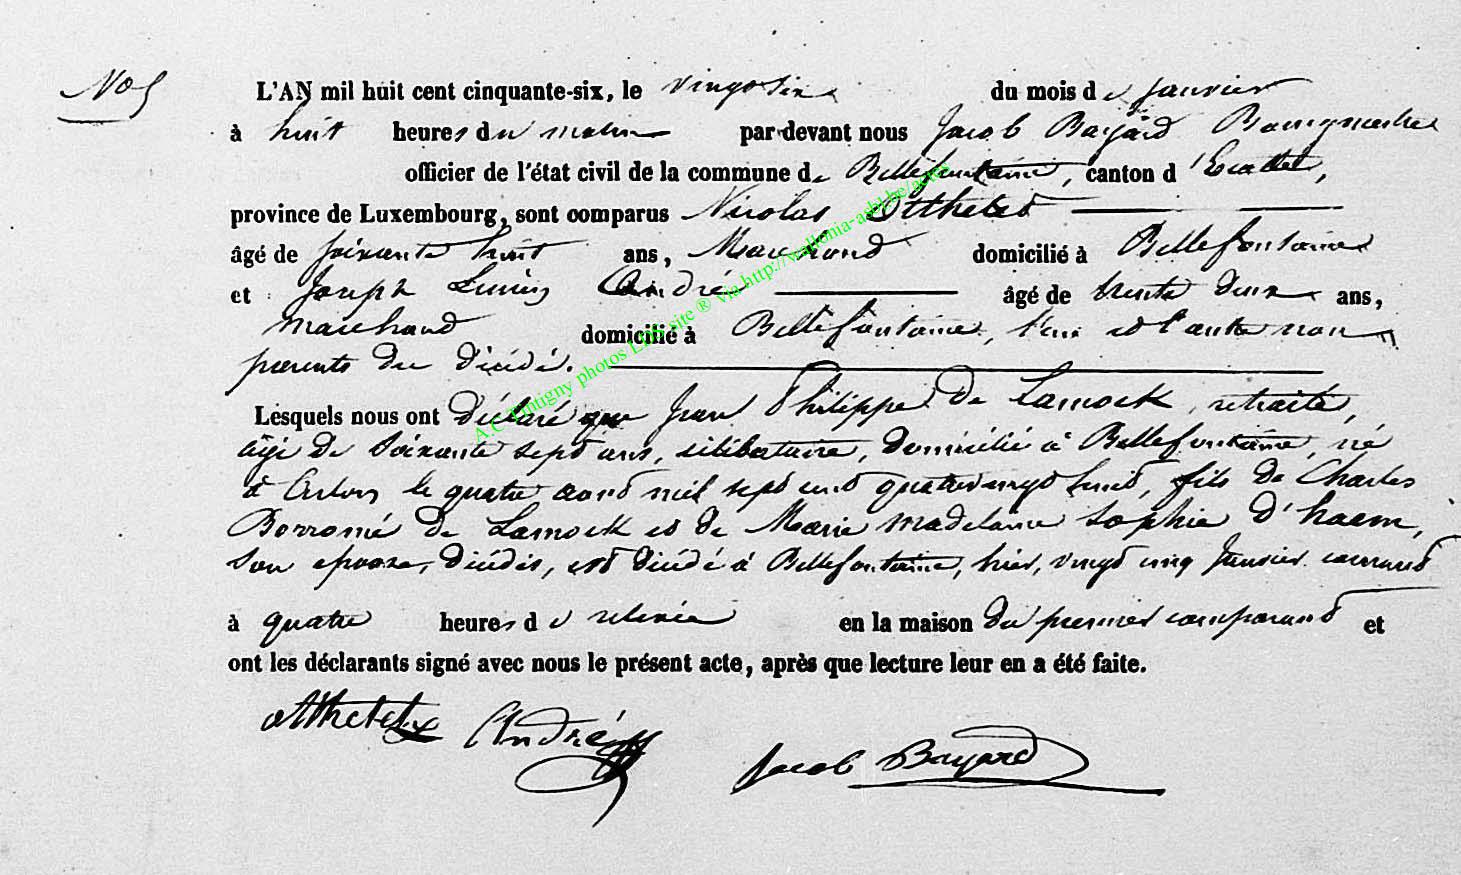 No 5
L'AN mil huit cent cinquante-six, le vingt six du mois de janvier
à huit heures du matin par devant nous Jacob Bayard Bourgmestre
officier de l'état civil de la commune de Bellefontaine, canton d'Etalle,
province de Luxembourg, sont comparus Nicolas Othelet
âgé de soixante huit ans, Marchand domicilié à Bellefontaine
et Joseph André âgé de trente deux ans,
marchand domicilié à Bellefontaine, l'un et l'autre non
parents du décédé.
Lesquels nous ont déclaré que Jean Philippe De Lamock, retraité,
âgé de soixante sept ans, célibataire, domicilié à Bellefontaine, né
à Arlon le quatre aout mil sept cent quatrevingt huit, fils de Charles
Borromé de Lamock et de Marie Madelaine Sophie d'haem,
son epouse, décédés, est décédé à Bellefontaine, hier, vingt cinq Janvier courant
à quatre heures de relevée en la maison du premier comparant et
ont les déclarants signé avec nous le présent acte, après que lecture leur en a été faite.
Othelet André Jacob Bayard
A.C. Tintigny photos LDS site ® via http://wallonia-asbl.be/actes